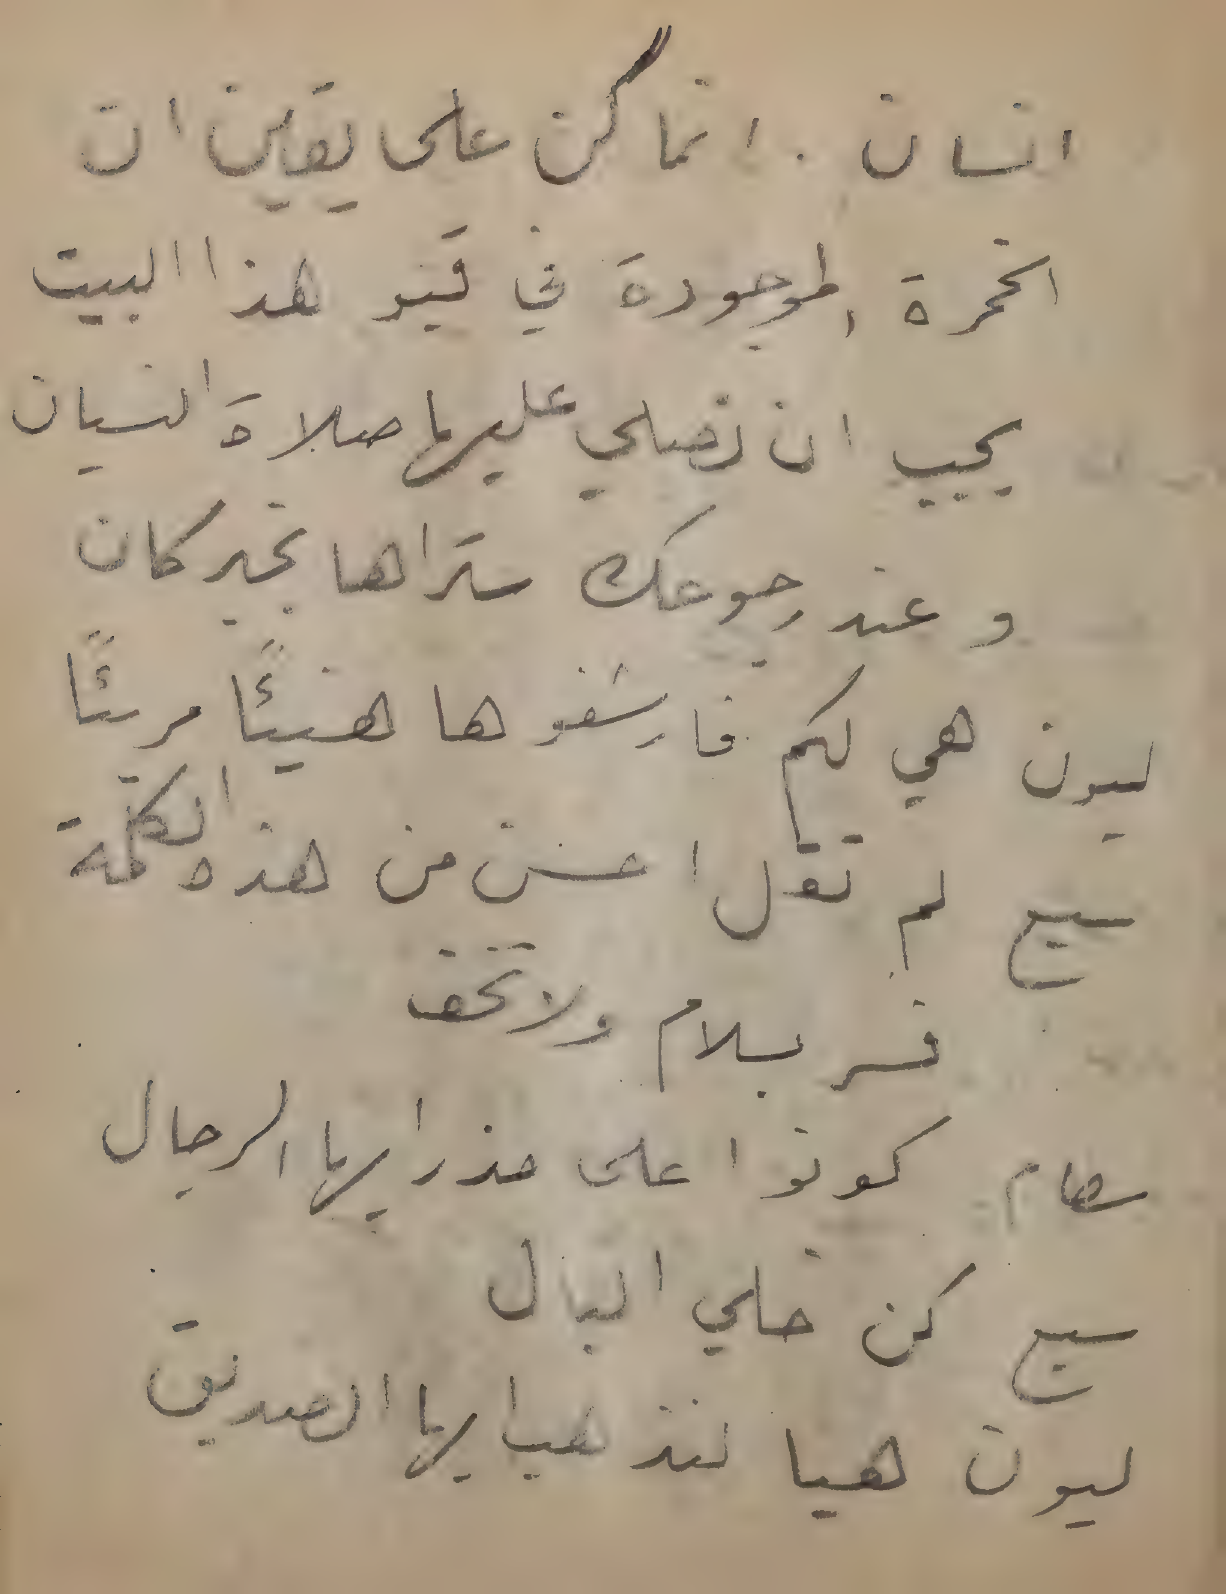 انسان . انما كن على يقين ان
الخمرة الموجودة في قبو هذا البيت
يجب ان نصلي عليها صلاة النسيان
وعند رجوعك ستراها بخبر كان
ليون هي لكم فارشفوها هنيئًا مريئًا
سبع لم تقل احسن من هذه الكلمة
فسر بسلام ولا تخف
سطام كونوا على حذر ايها الرجال
سبع كن خلي البال
ليون هيا لنذهب ايها الصديق